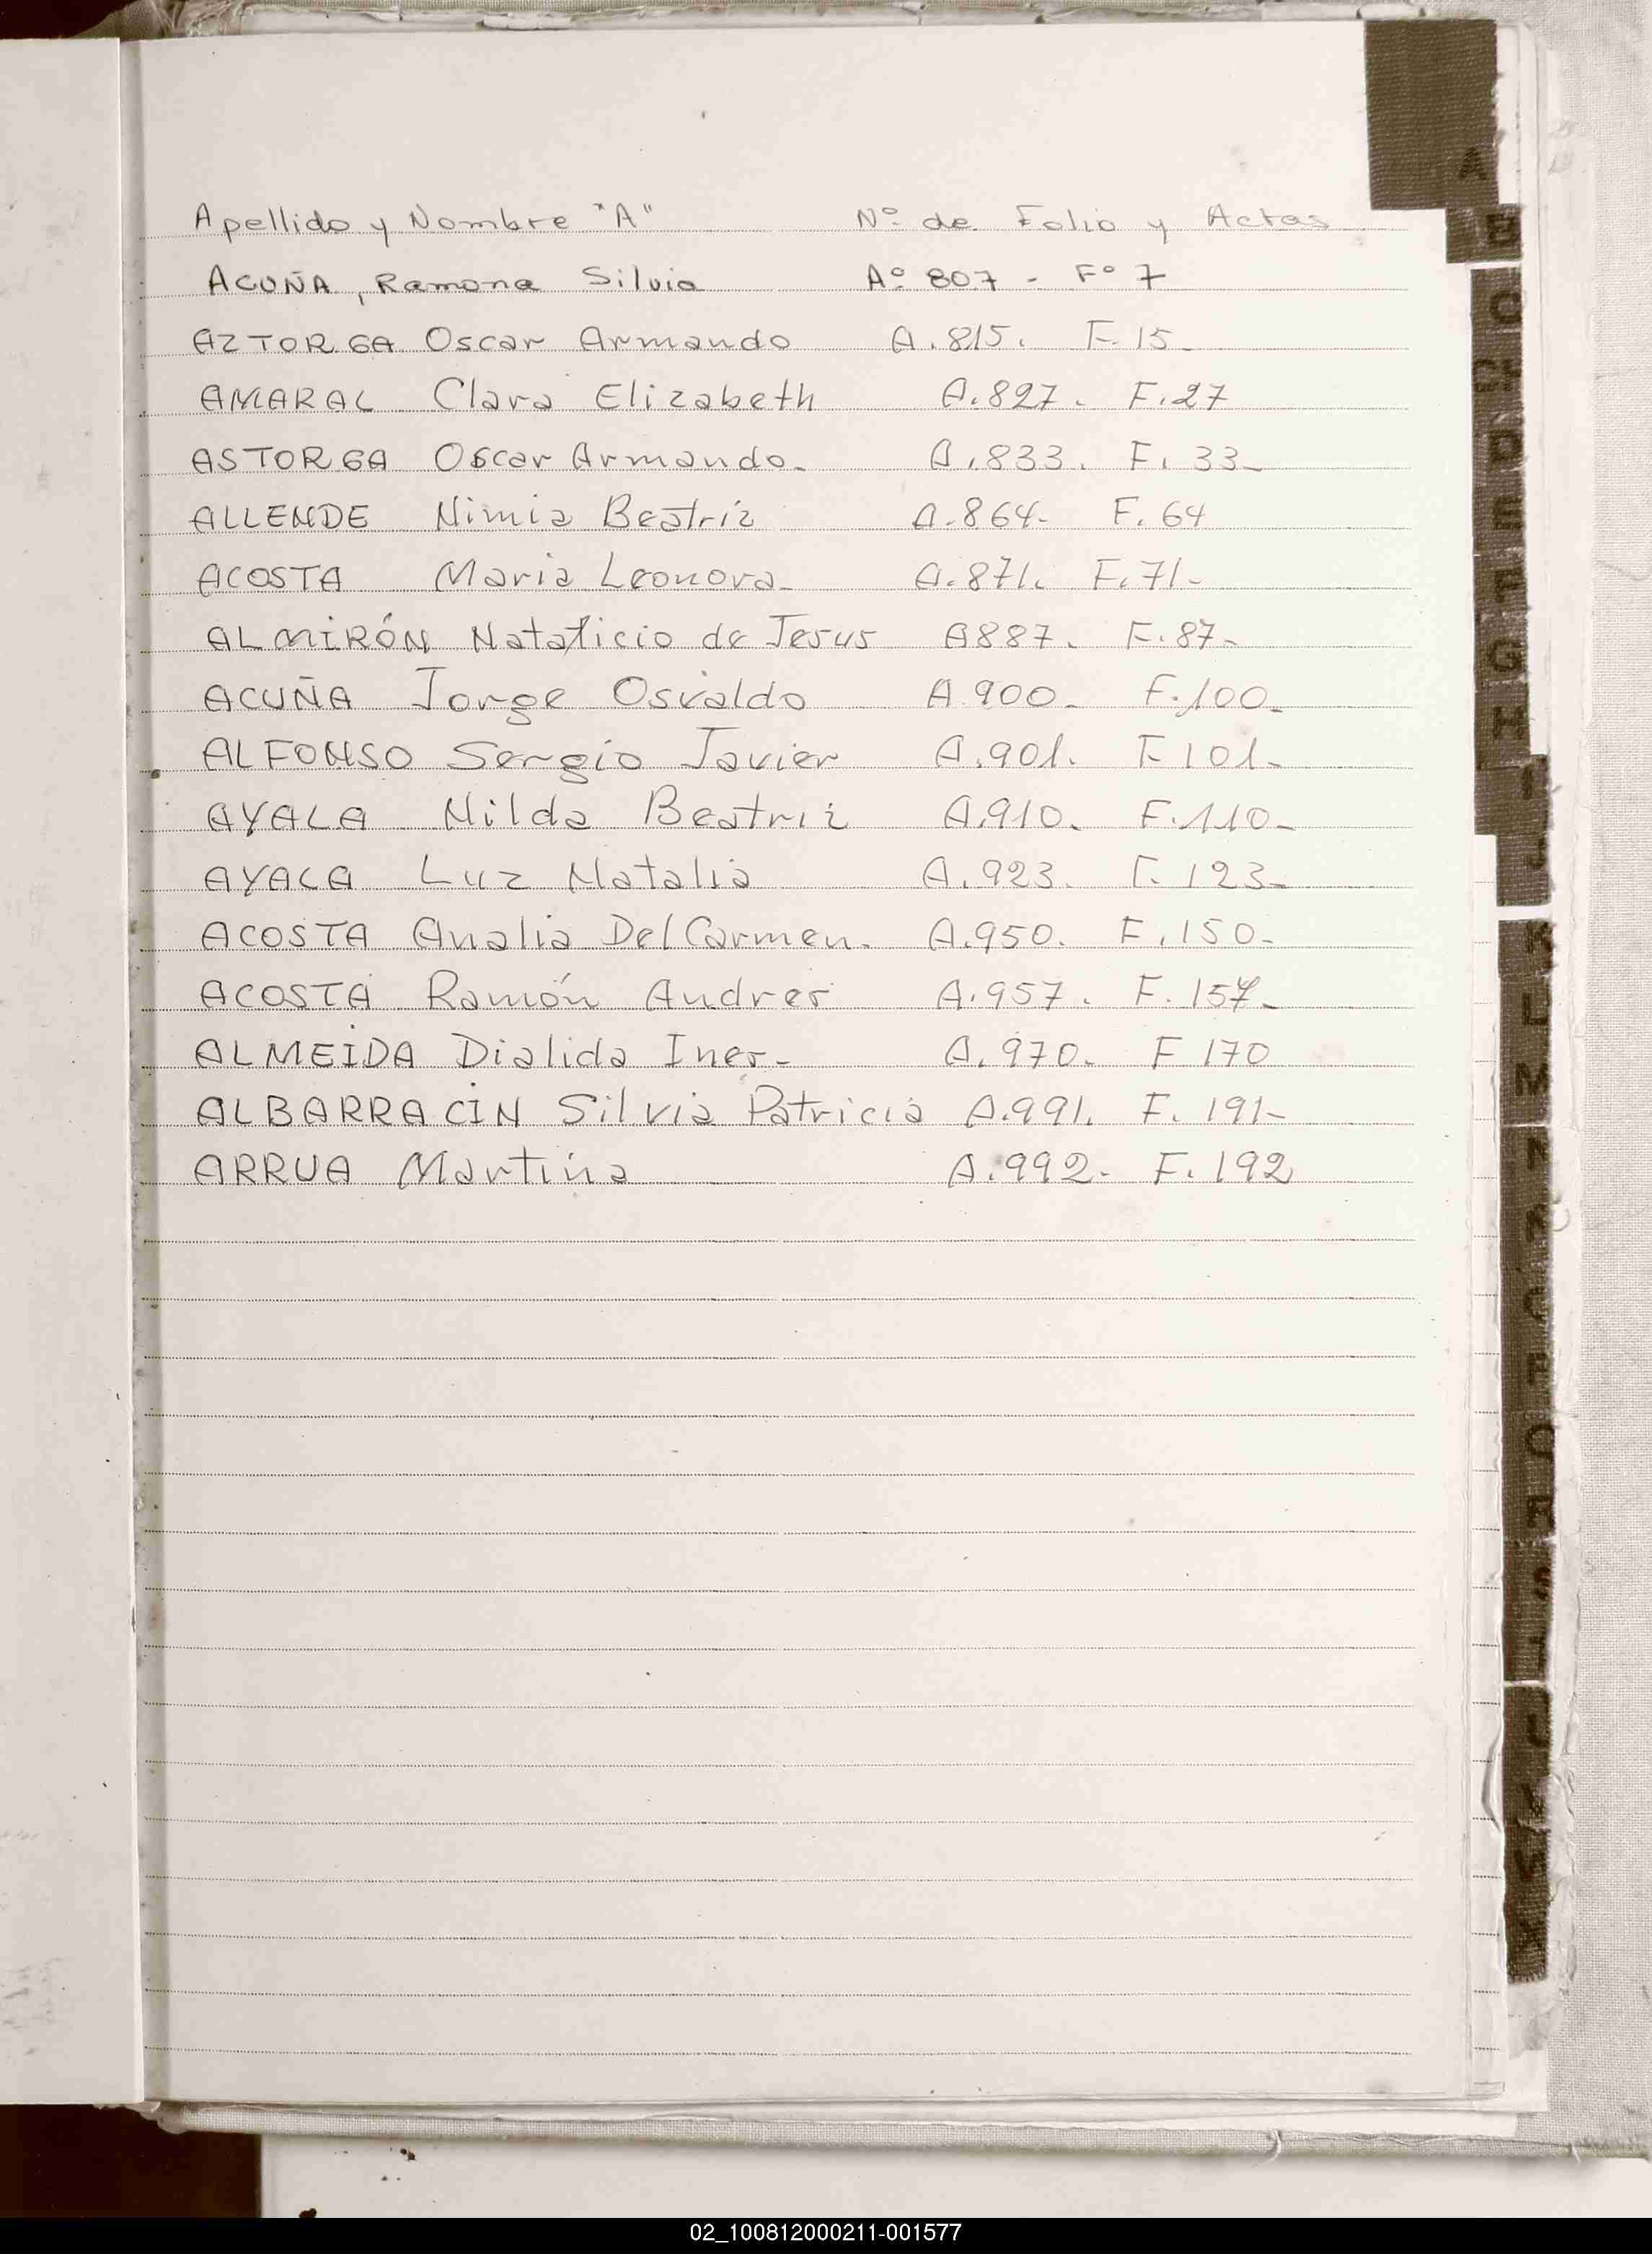 A
Apellido y Nombre "A" Nº de Folio y Actas
B
ACUÑA, Ramona Silvia Aº 807 - Fº 7
C
AZTORGA Oscar Armando A. 815. F. 15-
CH
AMARAL Clara Elizabeth A. 827. F. 27
D
ASTORGA Oscar Armando. A. 833. F. 33-
E
ALLENDE Nimia Beatriz A. 864- F. 64
F
ACOSTA Maria Leonora- A. 871. F. 71-
G
ALMIRÓN Natalicio de Jesus A 887. F. 87-
H
ACUÑA Jorge Osvaldo A. 900- F. 100-
I
ALFONSO Sergio Javier A. 901. F 101-
AYALA Nilda Beatriz A. 910. F. 110-
J
AYALA Luz Natalia A. 923. F. 123-
K
ACOSTA Analia Del Carmen. A. 950. F. 150-
L
ACOSTA Ramón Andres A. 957. F. 157-
ALMEIDA Dialida Ines- A. 970- F 170
M
ALBARRACIN Silvia Patricia A. 991. F. 191-
N
ARRUA Martina A. 992- F. 192
Ñ
O
P
Q
R
S
T
U
V
X
02_100812000211-001577